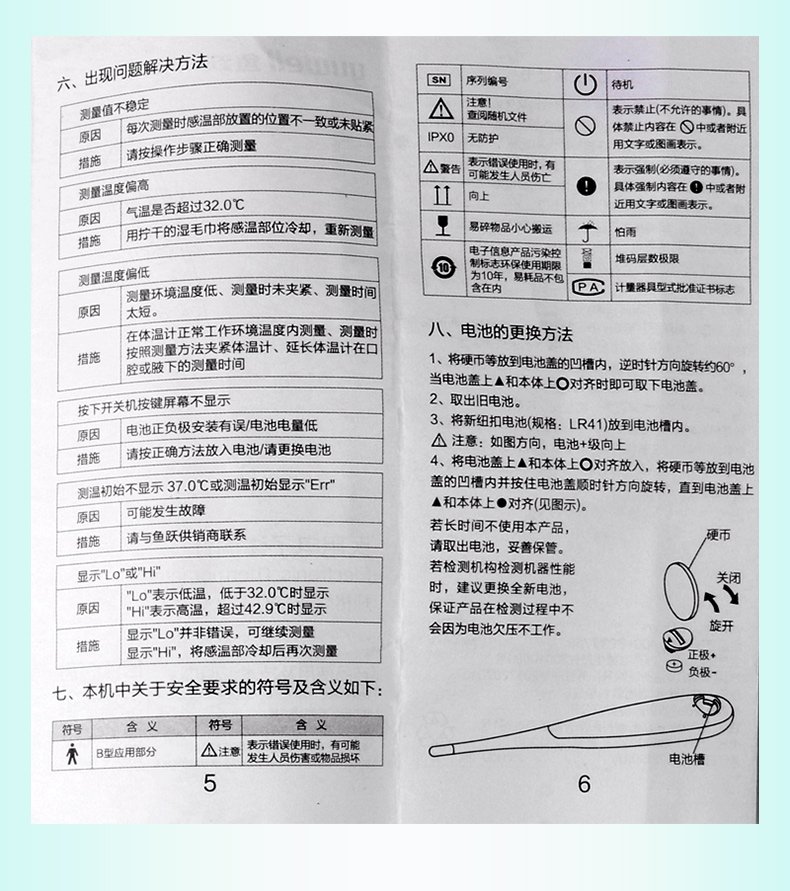 六、出现问题解决方法
测量值不稳定
原因 每次测量时感温部放置的位置不一致或未贴紧
措施 请按操作步骤正确测量
测量温度偏高
原因 气温是否超过32.0℃
措施 用拧干的湿毛巾将感温部位冷却，重新测量
测量温度偏低
原因 测量环境温度低、测量时未夹紧、测量时间
太短。
措施 在体温计正常工作环境温度内测量、测量时
按照测量方法夹紧体温计、延长体温计在口
腔或腋下的测量时间
按下开关机按键屏幕不显示
原因 电池正负极安装有误/电池电量低
措施 请按正确方法放入电池/请更换电池
测温初始不显示 37.0℃或测温初始显示"Err"
原因 可能发生故障
措施 请与鱼跃供销商联系
显示"Lo"或"Hi"
原因 "Lo"表示低温，低于32.0℃时显示
"Hi"表示高温，超过42.9℃时显示
措施 显示"Lo"并非错误，可继续测量
显示"Hi"，将感温部冷却后再次测量
七、本机中关于安全要求的符号及含义如下：
符号 含 义 符号 含 义
B型应用部分 注意 表示错误使用时，有可能
发生人员伤害或物品损坏
5
SN 序列编号 待机
注意！
查阅随机文件
表示禁止(不允许的事情)。具
体禁止内容在 中或者附近
用文字或图画表示。
IPX0 无防护
警告 表示错误使用时，有
可能发生人员伤亡
表示强制(必须遵守的事情)。
具体强制内容在 中或者附
近用文字或图画表示。
向上
易碎物品小心搬运 怕雨
10 电子信息产品污染控
制标志环保使用期限
为10年，易耗品不包
含在内
堆码层数极限
PA 计量器具型式批准证书标志
八、电池的更换方法
1、将硬币等放到电池盖的凹槽内，逆时针方向旋转约60°，
当电池盖上▲和本体上○对齐时即可取下电池盖。
2、取出旧电池。
3、将新纽扣电池(规格：LR41)放到电池槽内。
⚠ 注意：如图方向，电池+级向上
4、将电池盖上▲和本体上○对齐放入，将硬币等放到电池
盖的凹槽内并按住电池盖顺时针方向旋转，直到电池盖上
▲和本体上●对齐(见图示)。
若长时间不使用本产品，
请取出电池，妥善保管。
若检测机构检测机器性能
时，建议更换全新电池，
保证产品在检测过程中不
会因为电池欠压不工作。
硬币
关闭
旋开
正极+
负极-
电池槽
6